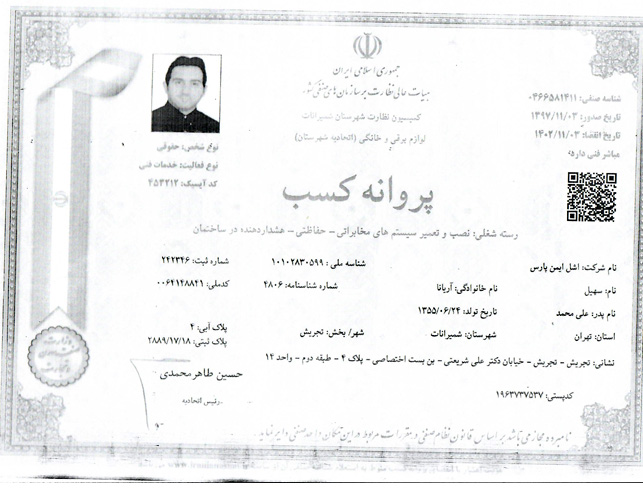 جمهوری اسلامی ایران
هیات عالی نظارت بر سازمان های صنفی کشور
کمیسیون نظارت شهرستان شمیرانات
لوازم برقی و خانگی (اتحادیه شهرستان)
شناسه صنفی: ۰۴۶۶۵۸۱۴۱۱
تاریخ صدور: ۱۳۹۷/۱۱/۰۳
تاریخ انقضا: ۱۴۰۲/۱۱/۰۳
مباشر فنی دارد
نوع شخص: حقوقی
نوع فعالیت: خدمات فنی
کد آیسیک: ۴۵۳۲۱۲
پروانه کسب
رسته شغلی: نصب و تعمیر سیستم های مخابراتی - حفاظتی - هشداردهنده در ساختمان
نام شرکت: اشل ایمن پارس شناسه ملی: ۱۰۱۰۲۸۳۰۵۹۹ شماره ثبت: ۲۴۲۳۴۶
نام: سهیل نام خانوادگی: آریانا شماره شناسنامه: ۴۸۰۶ کدملی: ۰۰۶۴۱۴۸۸۴۱
نام پدر: علی محمد تاریخ تولد: ۱۳۵۵/۰۶/۲۴
استان: تهران شهرستان: شمیرانات شهر/ بخش: تجریش پلاک آبی: ۴
پلاک ثبتی: ۲۸۸۹/۱۷/۱۸
نشانی: تجریش - تجریش - خیابان دکتر علی شریعتی - بن بست اختصاصی - پلاک ۴ - طبقه دوم - واحد ۱۴
کدپستی: ۱۹۶۳۷۳۷۵۳۷
حسین طاهرمحمدی
رئیس اتحادیه
نامبرده مجاز می باشد بر اساس قانون نظام صنفی و مقررات مربوط در این مکان واحد صنفی دایر نماید.